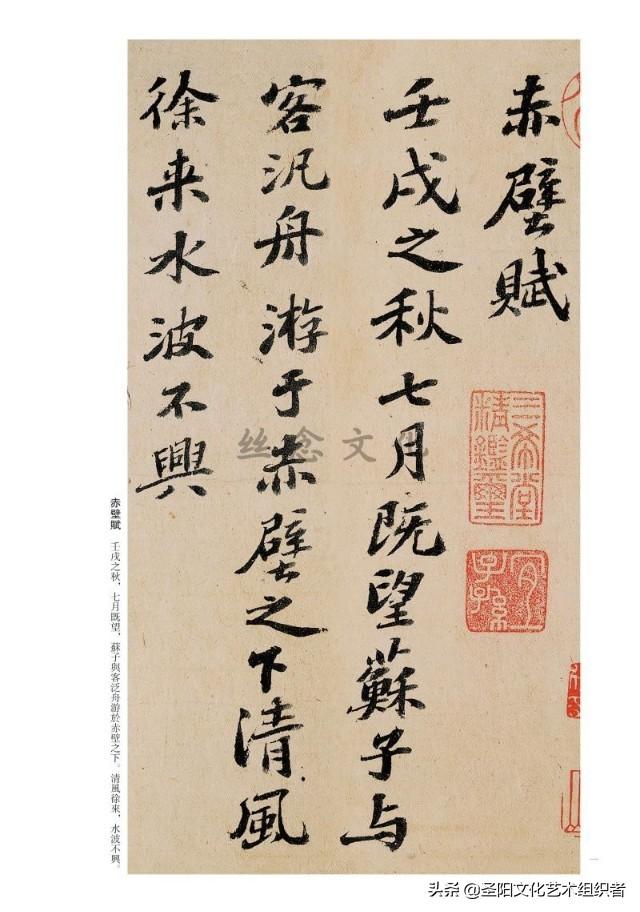 赤壁賦
壬戌之秋七月既望蘇子与
客汎舟游于赤壁之下清風
徐来水波不興
三希堂精鑑璽
宜子孫
丝念文化
赤壁賦 壬戌之秋，七月既望，蘇子與客泛舟游於赤壁之下。清風徐來，水波不興。
一
头条 @圣阳文化艺术组织者